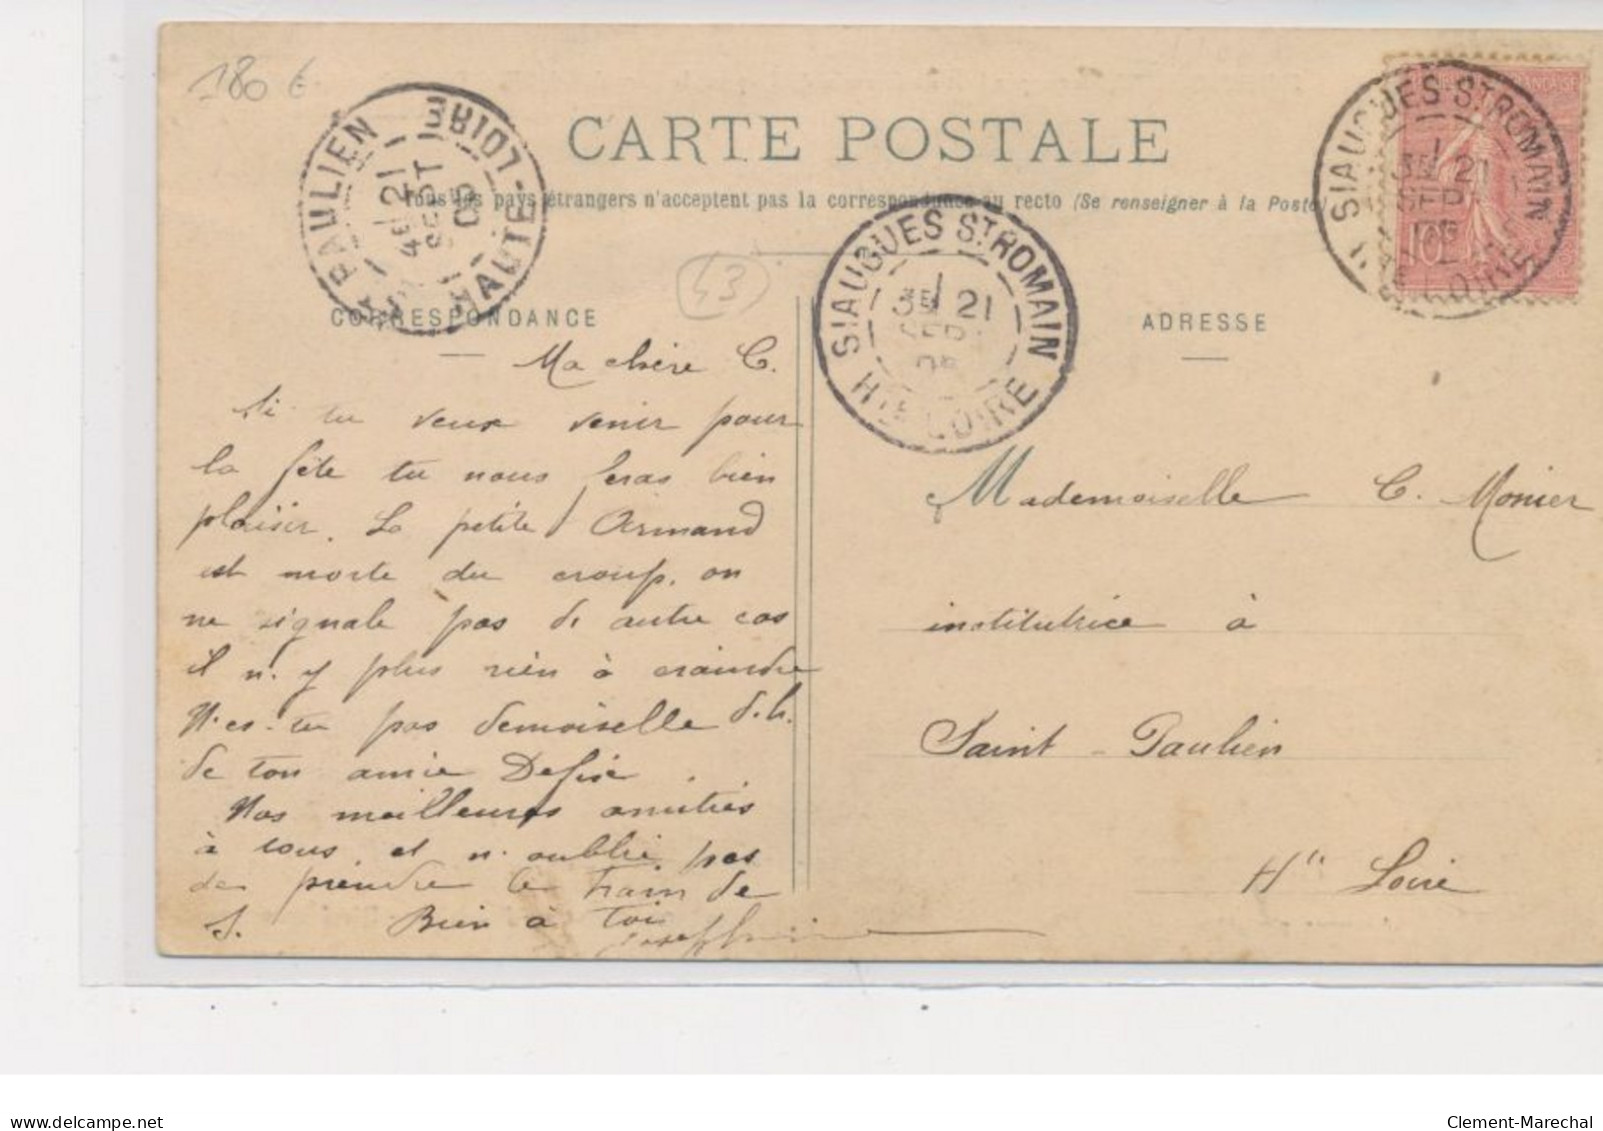 180 €
CARTE POSTALE
Tous les pays étrangers n'acceptent pas la correspondance au recto (Se renseigner à la Poste)
PAULIEN
HAUTE-LOIRE
4E 21
SEPT
05
43
SIAUGUES ST ROMAIN
HTE LOIRE
3E 21
SEPT
05
SIAUGUES ST ROMAIN
HTE LOIRE
3E 21
SEPT
10
CORRESPONDANCE
ADRESSE
Ma chère C.
Si tu veux venir pour
la fête tu nous feras bien
plaisir. La petite Armand
est morte du croup. on
ne signale pas de autre cas
il n'y plus rien à craindre
N'es-tu pas demoiselle d.h.
de ton amie
Nos meilleures amitiés
à tous et n'oublie pas
de prendre le train de
S. Bien à toi
Josephine
Mademoiselle C. Monier
institutrice à
Saint-Paulien
Hte Loire
www.delcampe.net
Clement-Marechal